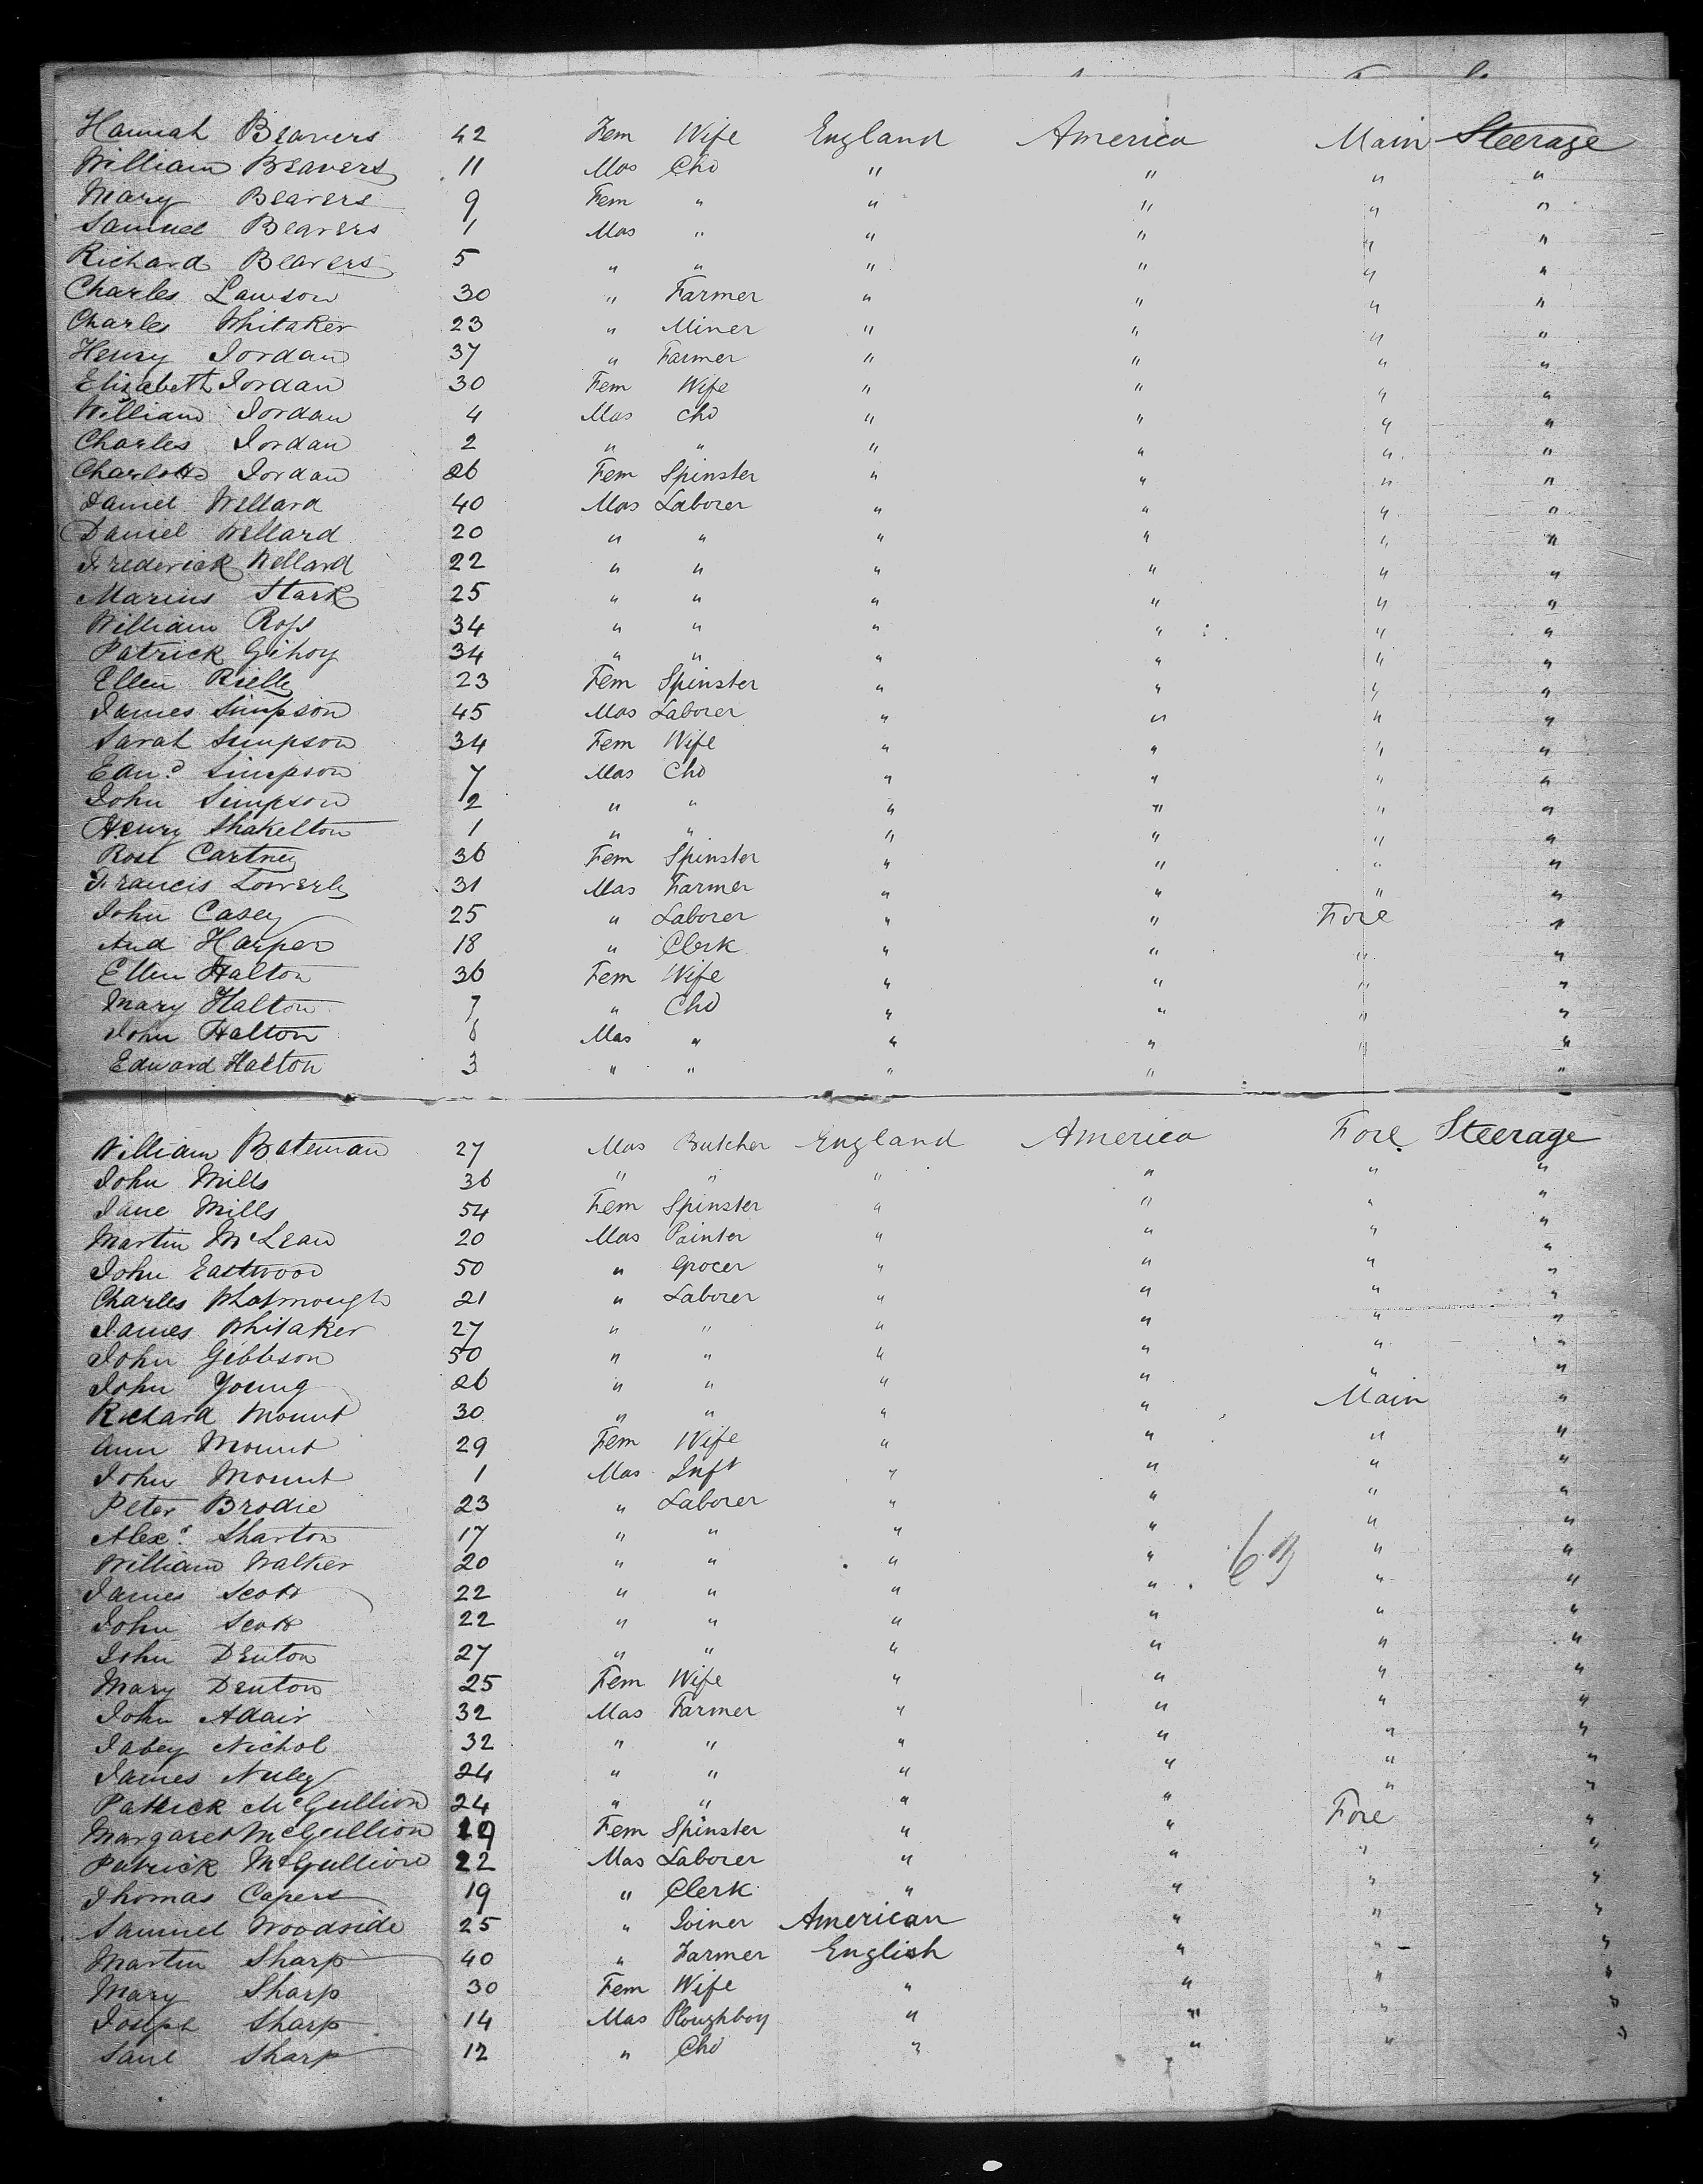 Hannah Beavers 42 Fem Wife England America Main Steerage
William Beavers 11 Mas Chd " " " "
Mary Beavers 9 Fem " " " " "
Samuel Beavers 1 Mas " " " " "
Richard Beavers 5 " " " " " "
Charles Lawson 30 " Farmer " " " "
Charles Whitaker 23 " Miner " " " "
Henry Jordan 37 " Farmer " " " "
Elizabeth Jordan 30 Fem Wife " " " "
William Jordan 4 Mas Chd " " " "
Charles Jordan 2 " " " " " "
Charlotte Jordan 26 Fem Spinster " " " "
Daniel Wellard 40 Mas Laborer " " " "
Daniel Wellard 20 " " " " " "
Frederick Wellard 22 " " " " " "
Marius Stark 25 " " " " " "
William Ross 34 " " " " " "
Patrick Gihoy 34 " " " " " "
Ellen Rielly 23 Fem Spinster " " " "
James Simpson 45 Mas Laborer " " " "
Sarah Simpson 34 Fem Wife " " " "
Edwd Simpson 7 Mas Chd " " " "
John Simpson 2 " " " " " "
Henry Shakelton 1 " " " " " "
Rose Cartney 36 Fem Spinster " " " "
Francis Lowerly 31 Mas Farmer " " " "
John Casey 25 " Laborer " " Fore "
And Harper 18 " Clerk " " " "
Ellen Halton 36 Fem Wife " " " "
Mary Halton 7 " Chd " " " "
John Halton 6 Mas " " " " "
Edward Halton 3 " " " " " "
William Bateman 27 Mas Butcher England America Fore Steerage
John Mills 36 " " " " " "
Jane Mills 54 Fem Spinster " " " "
Martin McLean 20 Mas Painter " " " "
John Eastwood 50 " Grocer " " " "
Charles Whatmough 21 " Laborer " " " "
James Whitaker 27 " " " " " "
John Gibbson 50 " " " " " "
John Young 26 " " " " " "
Richard Mount 30 " " " " Main "
Ann Mount 29 Fem Wife " " " "
John Mount 1 Mas Inft " " " "
Peter Brodie 23 " Laborer " " " "
Alexr Sharton 17 " " " " " "
William Walker 20 " " " " " "
James Scott 22 " " " " " "
John Scott 22 " " " " " "
John Denton 27 " " " " " "
Mary Denton 25 Fem Wife " " " "
John Adair 32 Mas Farmer " " " "
Jabey Nichol 32 " " " " " "
James Nuley 24 " " " " " "
Patrick McGullion 24 " " " " Fore "
Margaret McGullion 19 Fem Spinster " " " "
Patrick McGullion 22 Mas Laborer " " " "
Thomas Capers 19 " Clerk " " " "
Samuel Woodside 25 " Joiner American " " "
Martin Sharp 40 " Farmer English " " "
Mary Sharp 30 Fem Wife " " " "
Joseph Sharp 14 Mas Ploughboy " " " "
Saul Sharp 12 " Chd " " " "